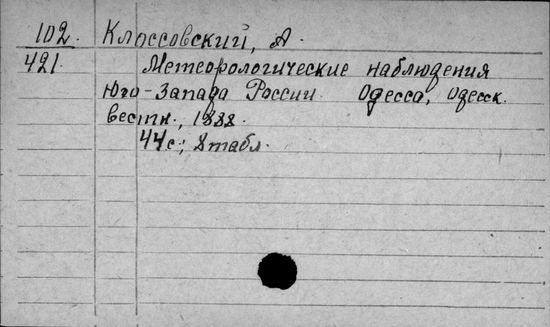 102. Клоссовский, А.
421. Метеорологические наблюдения
Юго-Запада России. Одесса, Одесск.
вестн., 1888.
44 с.; 8 табл.